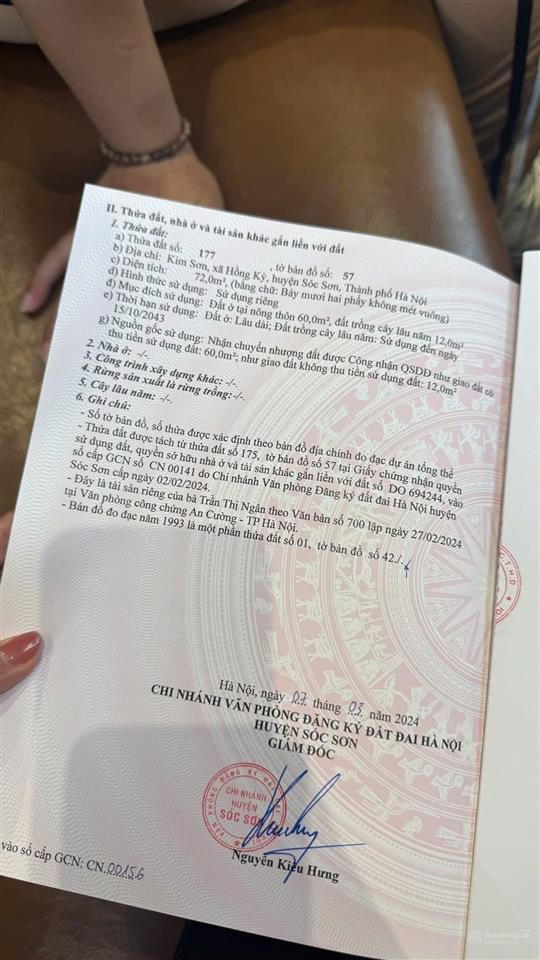 II. Thửa đất, nhà ở và tài sản khác gắn liền với đất
1. Thửa đất:
a) Thửa đất số: 177 , tờ bản đồ số: 57
b) Địa chỉ: Kim Sơn, xã Hồng Kỳ, huyện Sóc Sơn, Thành phố Hà Nội
c) Diện tích: 72,0m², (bằng chữ: Bảy mươi hai phẩy không mét vuông)
d) Hình thức sử dụng: Sử dụng riêng
đ) Mục đích sử dụng: Đất ở tại nông thôn 60,0m², đất trồng cây lâu năm 12,0m²
e) Thời hạn sử dụng: Đất ở: Lâu dài; Đất trồng cây lâu năm: Sử dụng đến ngày
15/10/2043
g) Nguồn gốc sử dụng: Nhận chuyển nhượng đất được Công nhận QSDĐ như giao đất có
thu tiền sử dụng đất: 60,0m²; như giao đất không thu tiền sử dụng đất: 12,0m²
2. Nhà ở: -/-.
3. Công trình xây dựng khác: -/-.
4. Rừng sản xuất là rừng trồng:-/-.
5. Cây lâu năm: -/-.
6. Ghi chú:
- Số tờ bản đồ, số thửa được xác định theo bản đồ địa chính đo đạc dự án tổng thể
- Thửa đất được tách từ thửa đất số 175, tờ bản đồ số 57 tại Giấy chứng nhận quyền
sử dụng đất, quyền sở hữu nhà ở và tài sản khác gắn liền với đất số DO 694244, vào
sổ cấp GCN số CN 00141 do Chi nhánh Văn phòng Đăng ký đất đai Hà Nội huyện
Sóc Sơn cấp ngày 02/02/2024.
- Đây là tài sản riêng của bà Trần Thị Ngần theo Văn bản số 700 lập ngày 27/02/2024
tại Văn phòng công chứng An Cường - TP Hà Nội.
- Bản đồ đo đạc năm 1993 là một phần thửa đất số 01, tờ bản đồ số 42./.
Hà Nội, ngày 07 tháng 03 năm 2024
CHI NHÁNH VĂN PHÒNG ĐĂNG KÝ ĐẤT ĐAI HÀ NỘI
HUYỆN SÓC SƠN
GIÁM ĐỐC
CHI NHÁNH
HUYỆN
SÓC SƠN
Nguyễn Kiều Hưng
vào sổ cấp GCN: CN.00156
Batdongsan